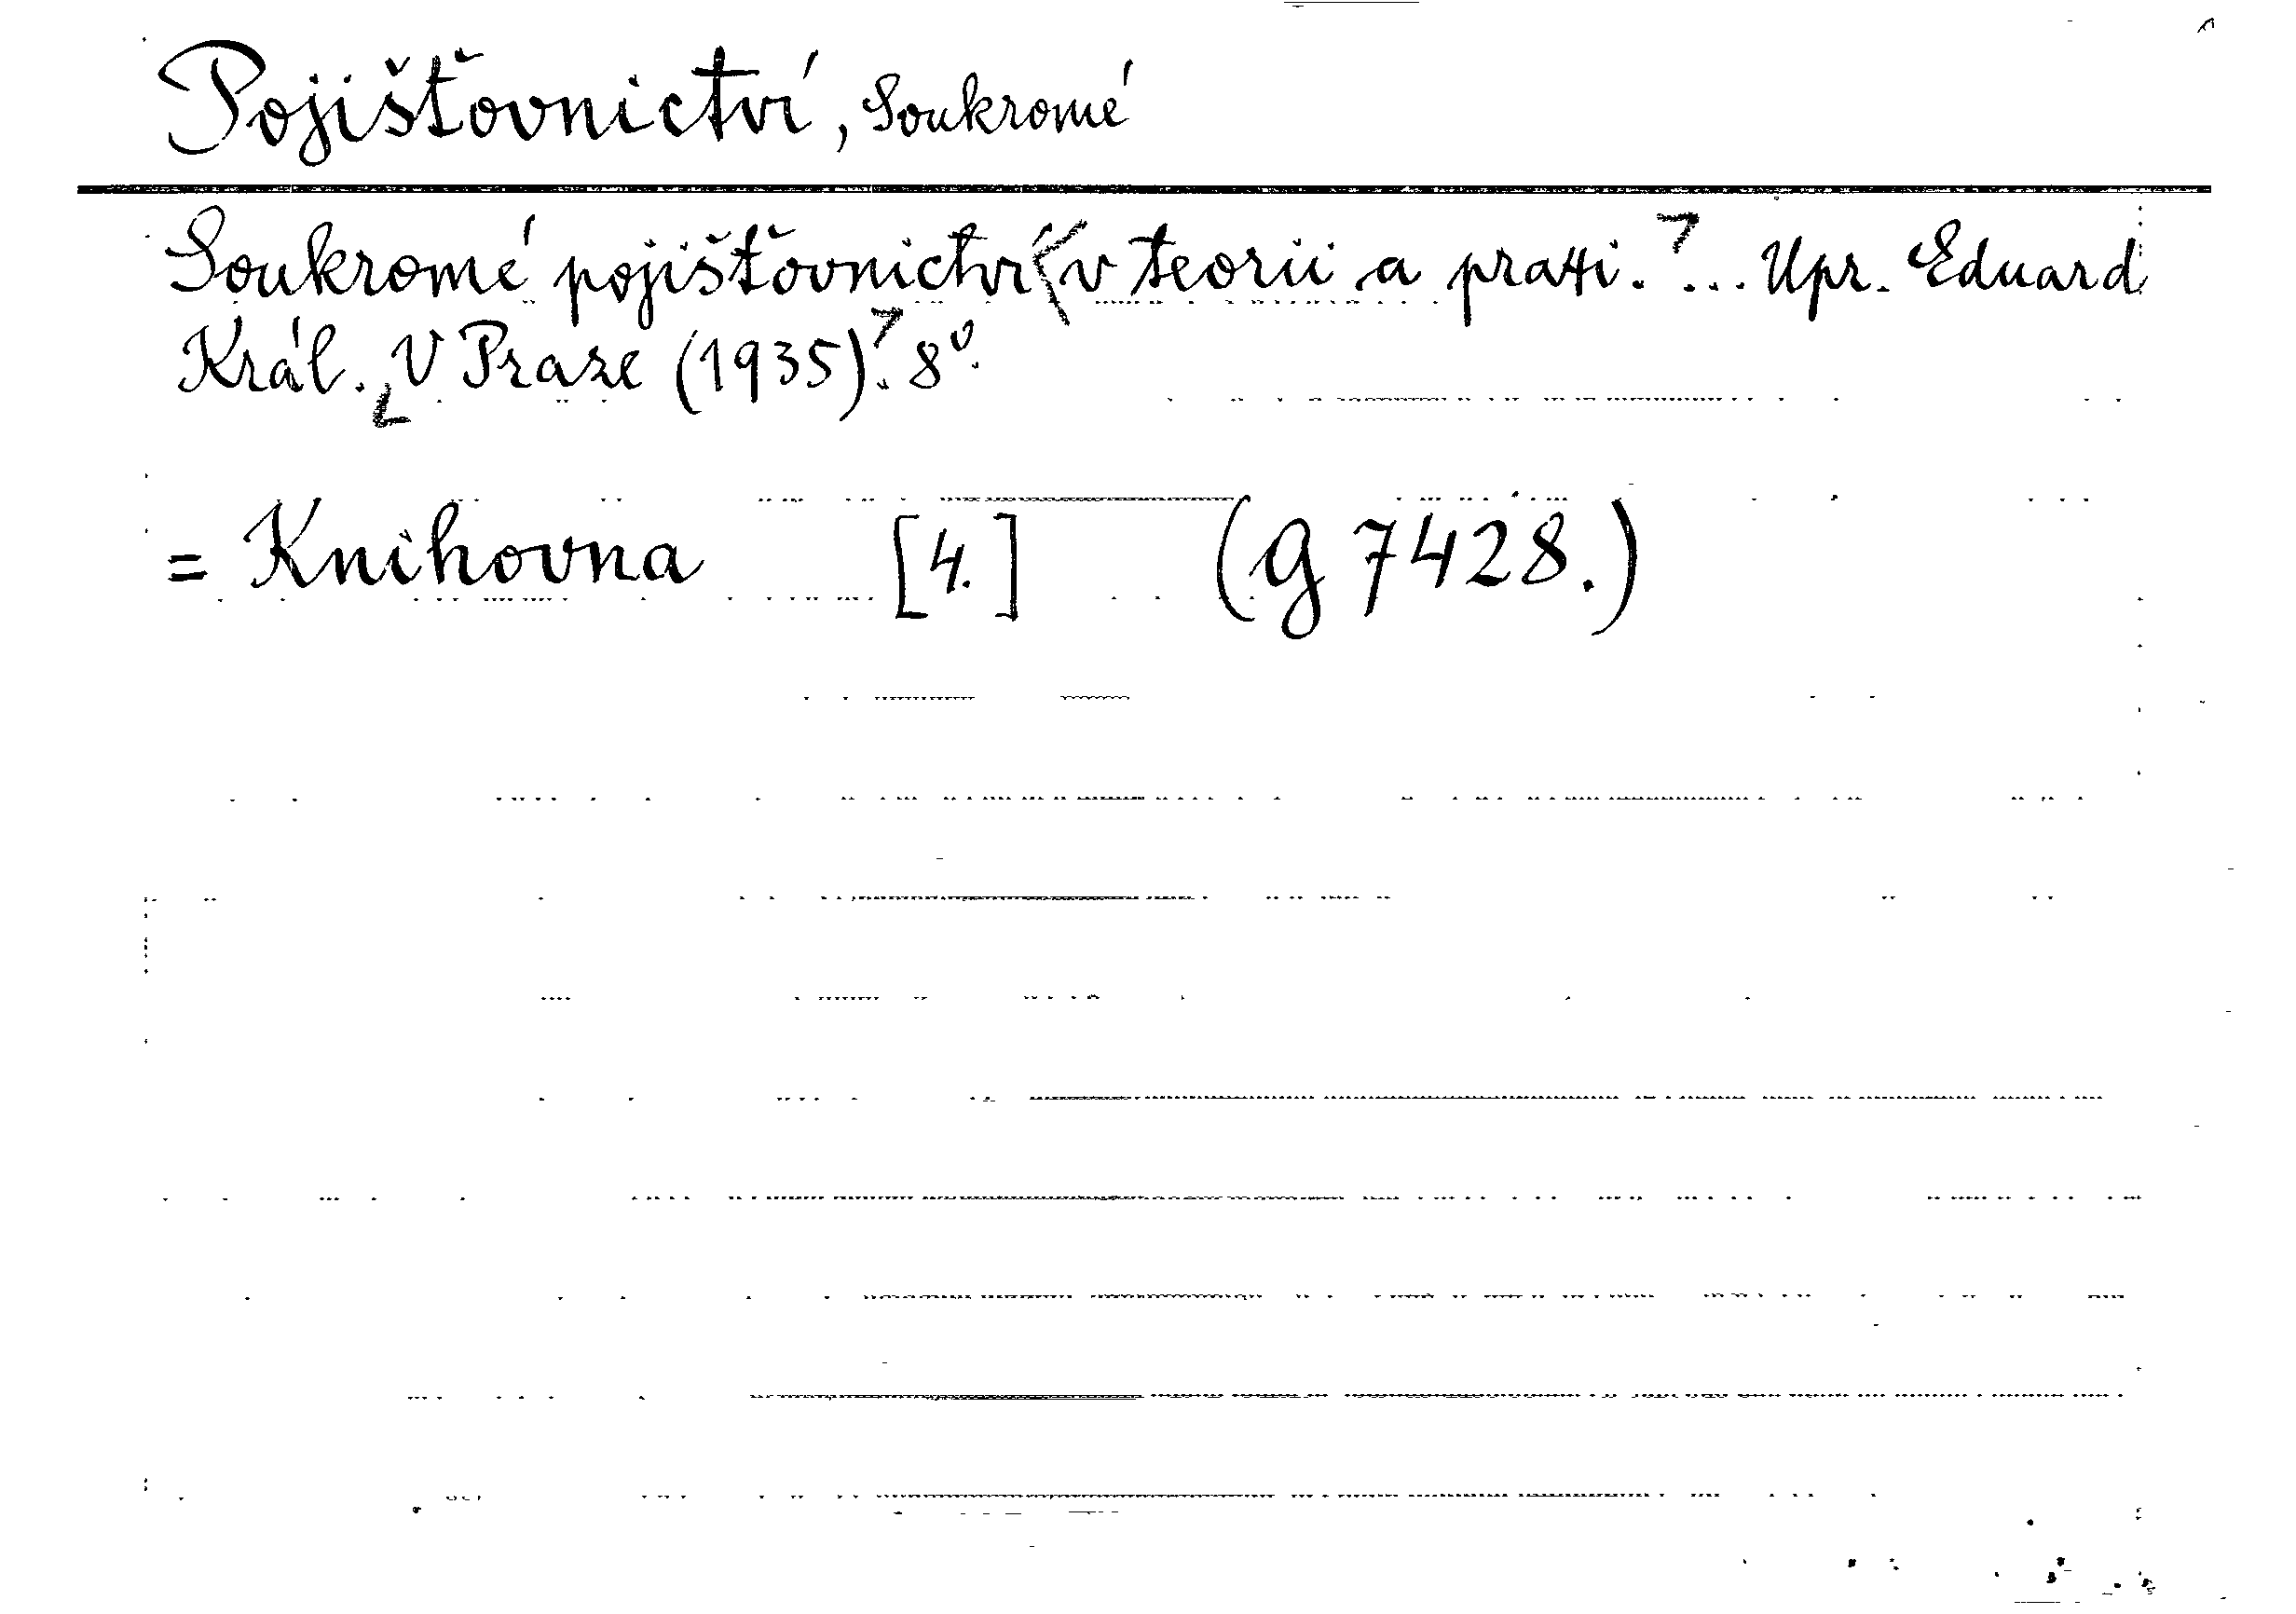 Pojišťovnictví, Soukromé
Soukromé pojišťovnictví v teorii a praxi. ... Upr. Eduard
Král. V Praze (1935). 8°.
= Knihovna [4.] (g 7428.)